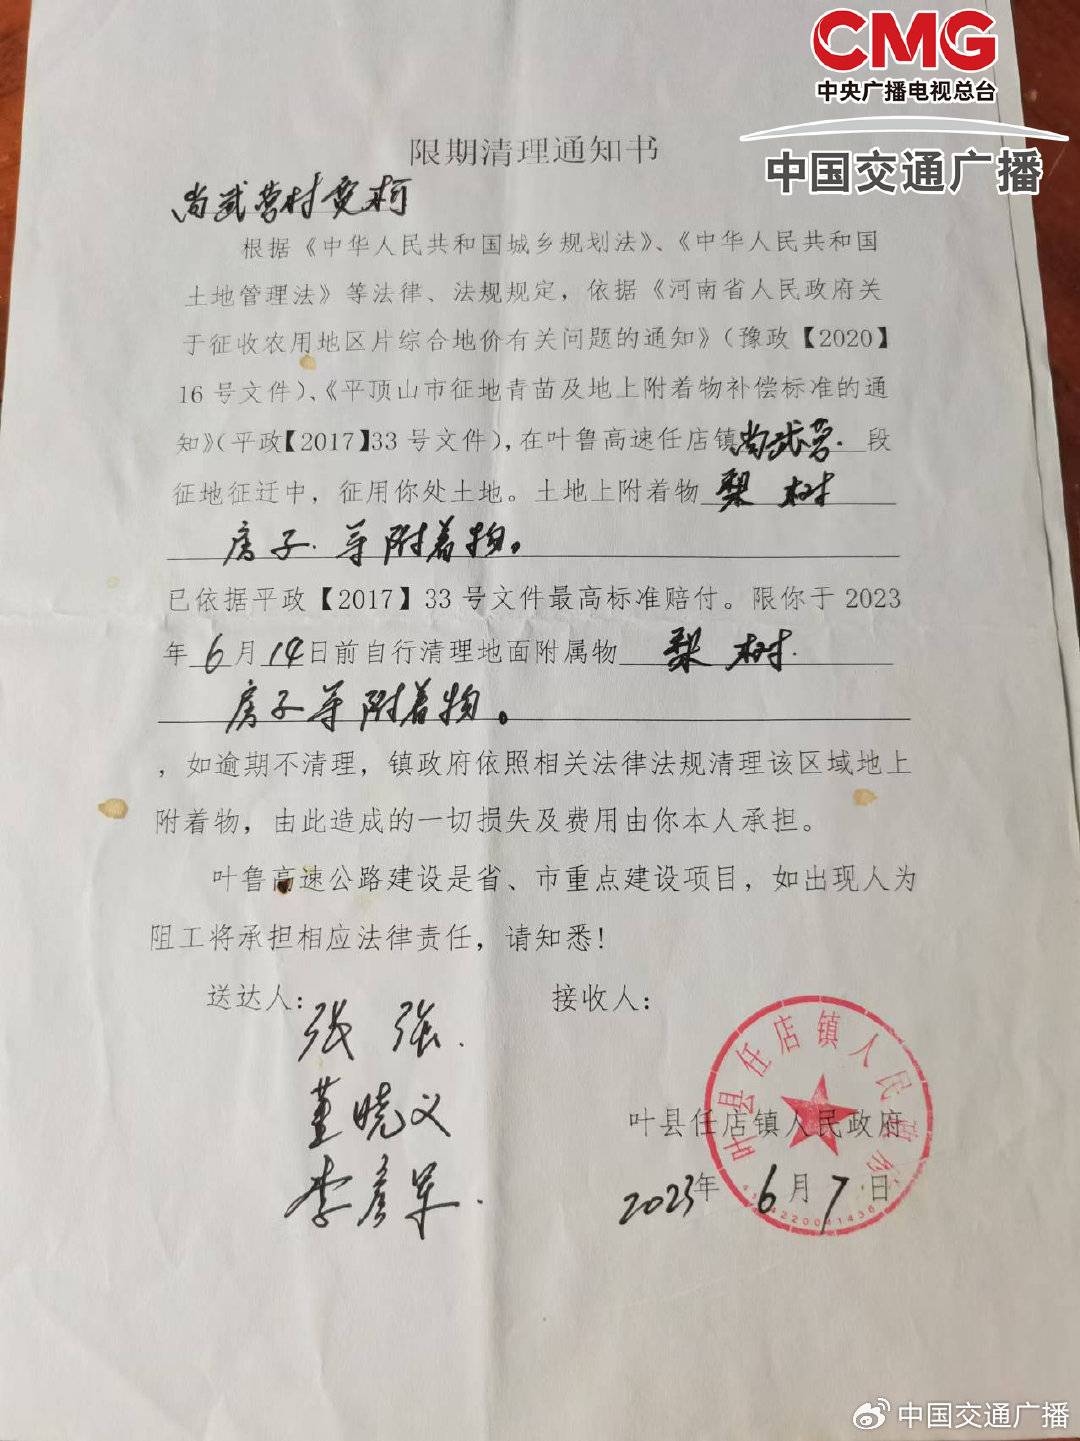 CMG
中央广播电视总台
中国交通广播
限期清理通知书
尚武营村贾柯
根据《中华人民共和国城乡规划法》、《中华人民共和国
土地管理法》等法律、法规规定，依据《河南省人民政府关
于征收农用地区片综合地价有关问题的通知》（豫政【2020】
16号文件）、《平顶山市征地青苗及地上附着物补偿标准的通
知》（平政【2017】33号文件），在叶鲁高速任店镇尚武营.段
征地征迁中，征用你处土地。土地上附着物 梨 树
房子.等附着物。
已依据平政【2017】33号文件最高标准赔付。限你于2023
年6月14日前自行清理地面附属物 梨 树.
房子等附着物。
，如逾期不清理，镇政府依照相关法律法规清理该区域地上
附着物，由此造成的一切损失及费用由你本人承担。
叶鲁高速公路建设是省、市重点建设项目，如出现人为
阻工将承担相应法律责任，请知悉！
送达人： 接收人：
张 强.
董晓义
李彦军.
叶县任店镇人民政府
叶县任店镇人民政府
2023年6月7日
中国交通广播